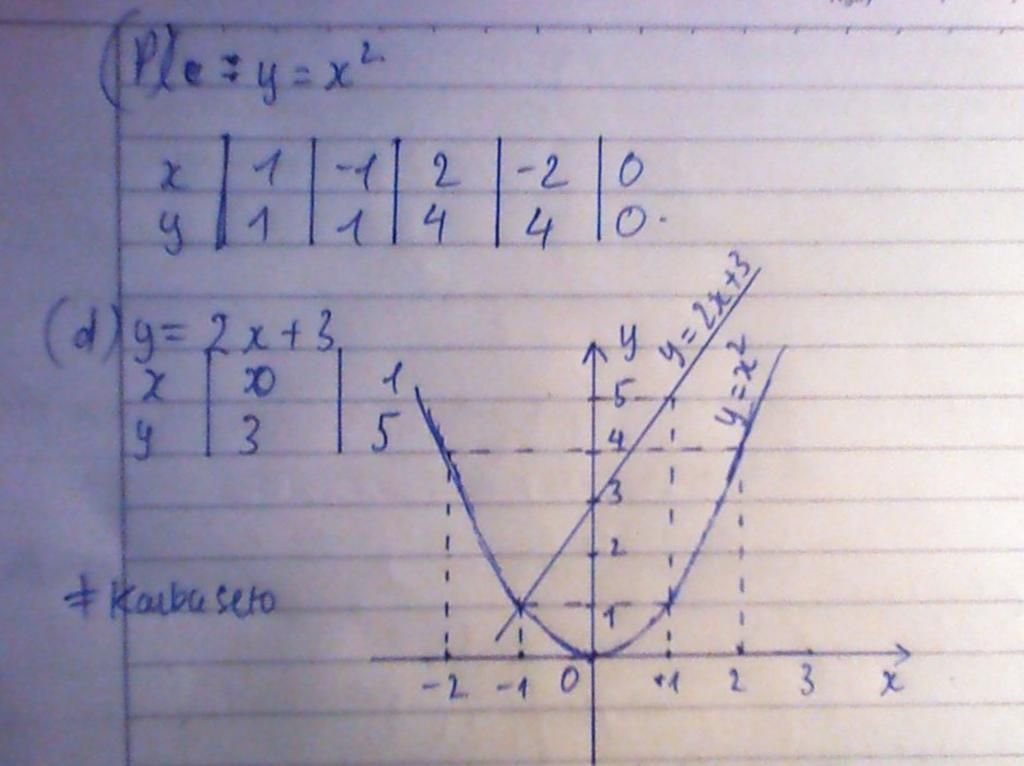 (P) : y = x²
x | 1 | -1 | 2 | -2 | 0
y | 1 | 1 | 4 | 4 | 0.
(d) y = 2x + 3
x | 0 | 1
y | 3 | 5
y
y = 2x+3
y = x²
5
4
3
2
1
-2 -1 0 +1 2 3 x